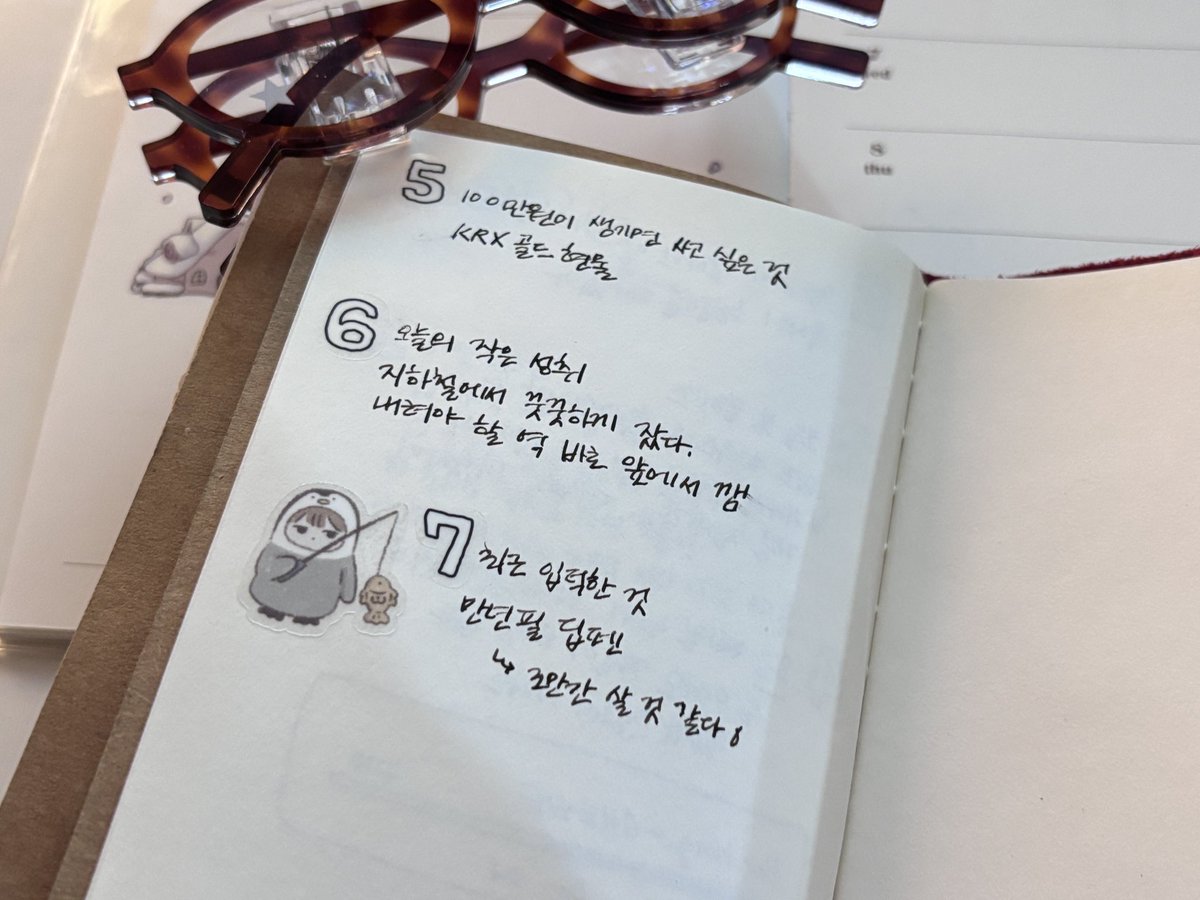 5 100만원이 생기면 쓰고 싶은 것
KRX 골드 현물
6 오늘의 작은 성취
지하철에서 꿋꿋하게 잤다.
내려야 할 역 바로 앞에서 깸
7 최근 입덕한 것
만년필 딥펜
↳ 조만간 살 것 같다
S
thu